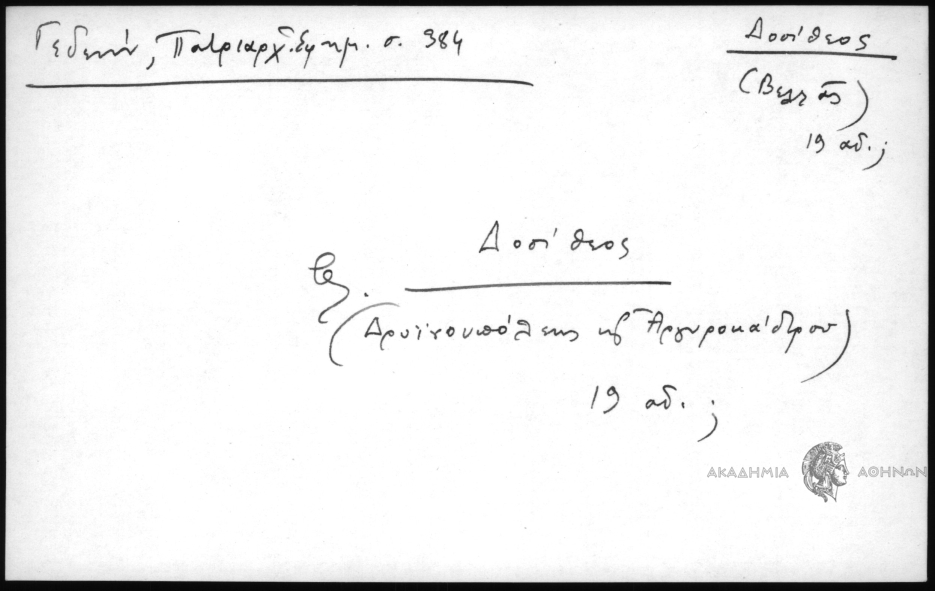 Γεδεών, Πατριαρχ. Εφημ. σ. 384
Δοσίθεος
(Βελᾶς)
19 αἰ. ;
Δοσίθεος
(Δρυϊνουπόλεως κ Ἀργυροκάστρου)
19 αἰ. ;
ΑΚΑΔΗΜΙΑ ΑΘΗΝΩΝ